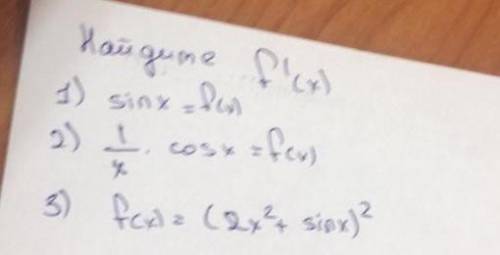 Найдите f'(x)
1) sinx = f(x)
2) 1/x · cosx = f(x)
3) f(x) = (2x² + sinx)²